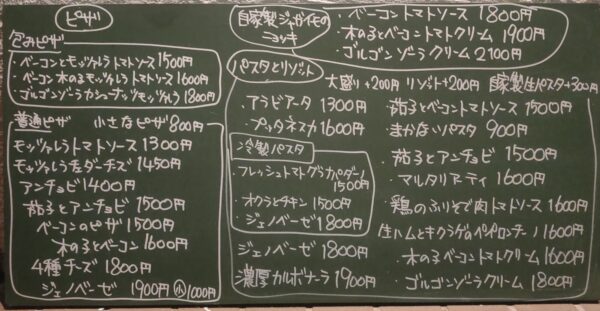 ピザ
包みピザ
・ベーコンとモッツァレラトマトソース 1500円
・ベーコン木の子モッツァレラトマトソース 1600円
・ゴルゴンゾーラカシューナッツモッツァレラ 1800円
普通ピザ 小さなピザ 800円
モッツァレラトマトソース 1300円
モッツァレラチェダーチーズ 1450円
アンチョビ 1400円
茄子とアンチョビ 1500円
ベーコンのピザ 1500円
木の子とベーコン 1600円
4種チーズ 1800円
ジェノベーゼ 1900円 小 1000円
自家製ジャガイモのニョッキ
・ベーコントマトソース 1800円
・木の子とベーコントマトクリーム 1900円
・ゴルゴンゾーラクリーム 2100円
パスタとリゾット
大盛り+200円 リゾット+200円 自家製生パスタ+300円
・アラビアータ 1300円
・プッタネスカ 1600円
冷製パスタ
・フレッシュトマトグラナパダーノ
1500円
・オクラとチキン 1500円
・ジェノベーゼ 1800円
ジェノベーゼ 1800円
濃厚カルボナーラ 1900円
茄子とベーコントマトソース 1500円
・まかないパスタ 900円
・茄子とアンチョビ 1500円
・マルタリアーティ 1600円
・鶏のふりそで肉トマトソース 1600円
生ハムとキクラゲのペペロンチーノ 1600円
・木の子ベーコントマトクリーム 1600円
・ゴルゴンゾーラクリーム 1800円